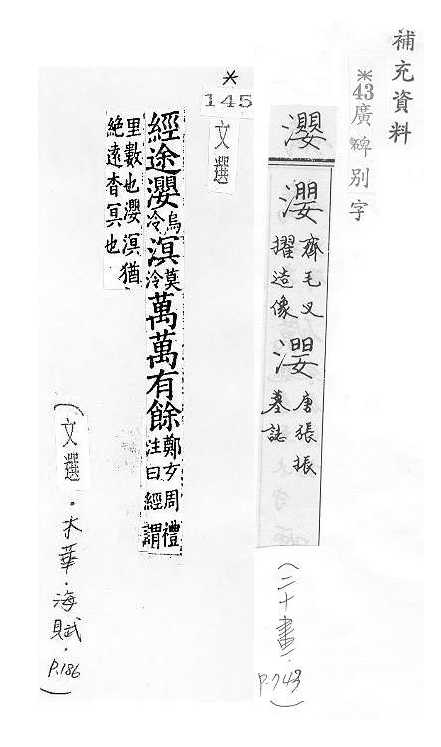 補充資料
*43廣碑別字
瀴
瀴 齊毛叉
擢造像
瀴 唐張振
墓誌
(二十畫．
P.743)
*
145
文選
經途瀴烏
冷溟莫
冷萬萬有餘鄭女周禮
注曰經謂
里數也瀴溟猶
絶遠杳冥也
(文選．木華．海賦．
P.186)